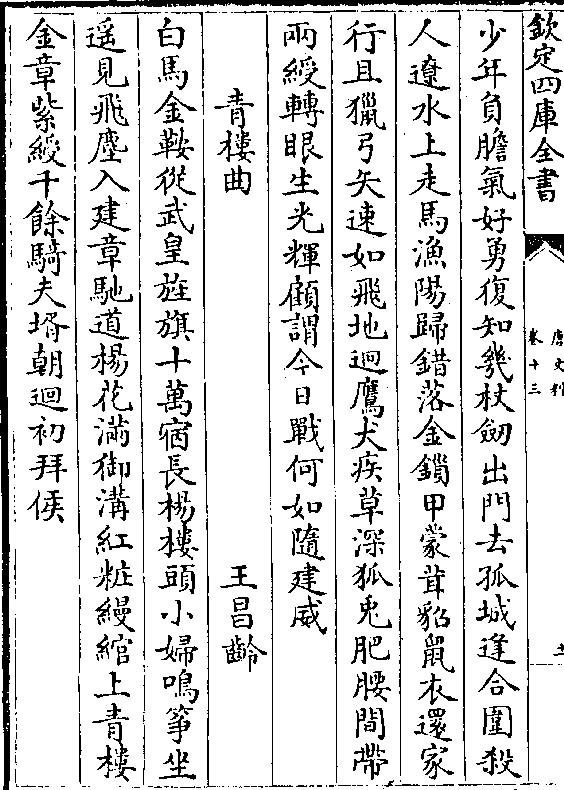 欽定四庫全書
卷十三
少年負膽氣好勇復知幾杖劒出門去孤城逢合圍殺
人遼水上走馬漁陽歸錯落金鎖甲蒙茸貂鼠衣還家
行且獵弓矢速如飛地迥鷹犬疾草深狐兎肥腰間帶
兩綬轉眼生光輝顧謂今日戰何如隨建威
青樓曲
王昌齡
白馬金鞍從武皇旌旗十萬宿長楊樓頭小婦鳴筝坐
遥見飛塵入建章馳道楊花滿御溝紅粧縵綰上青樓
金章紫綬千餘騎夫壻朝迴初拜侯